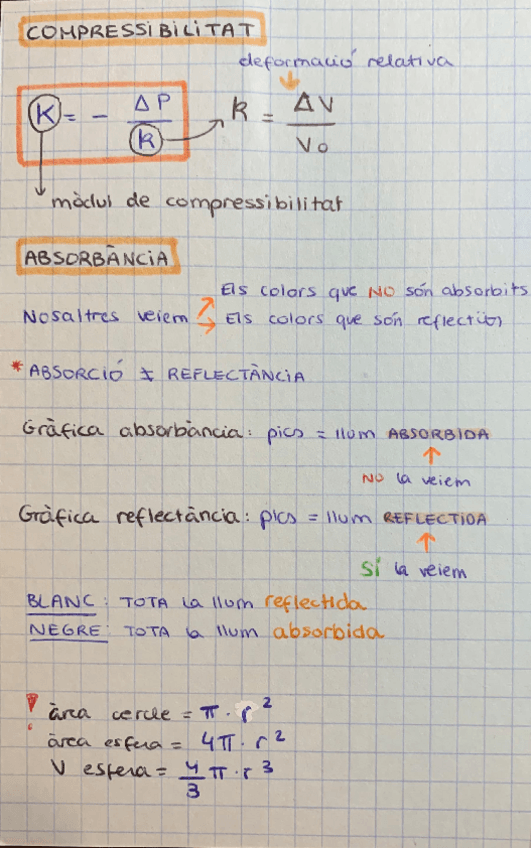 COMPRESSIBILITAT
deformació relativa
K = - ΔP / k → k = ΔV / V₀
mòdul de compressibilitat
ABSORBÀNCIA
Els colors que NO són absorbits
Nosaltres veiem Els colors que són reflectits
* ABSORCIÓ ≠ REFLECTÀNCIA
Gràfica absorbància: pics = llum ABSORBIDA
NO la veiem
Gràfica reflectància: pics = llum REFLECTIDA
SÍ la veiem
BLANC: TOTA la llum reflectida
NEGRE: TOTA la llum absorbida
! àrea cercle = π · r²
àrea esfera = 4π · r²
V esfera = 4/3 π · r³